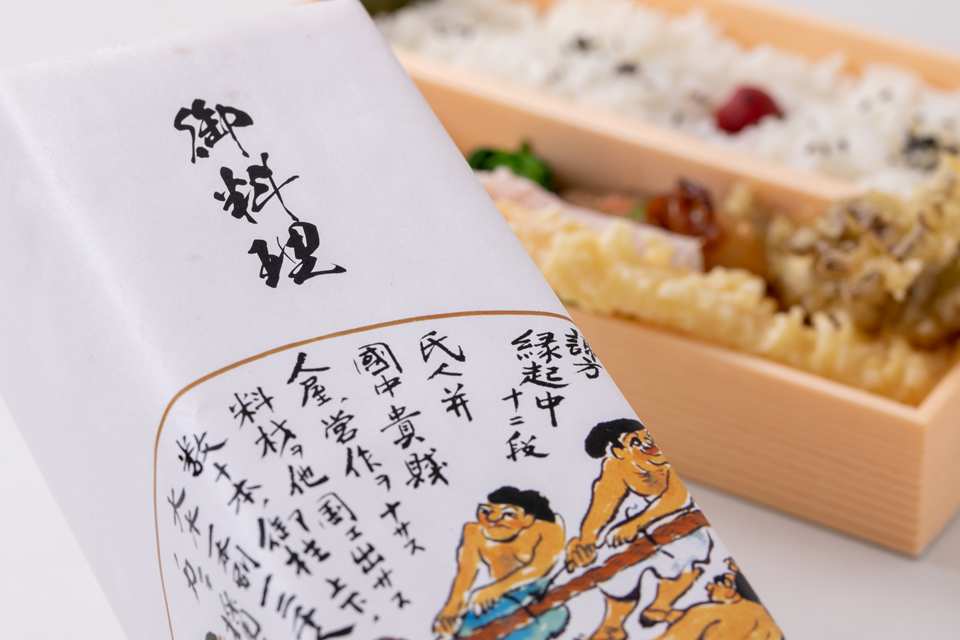 御料理
諏方
縁起中
十二段
氏人并
國中貴賤
人屋、営作ヲナサス
料材ヲ他国エ出サス
数十本、御柱上下、
大木一本別